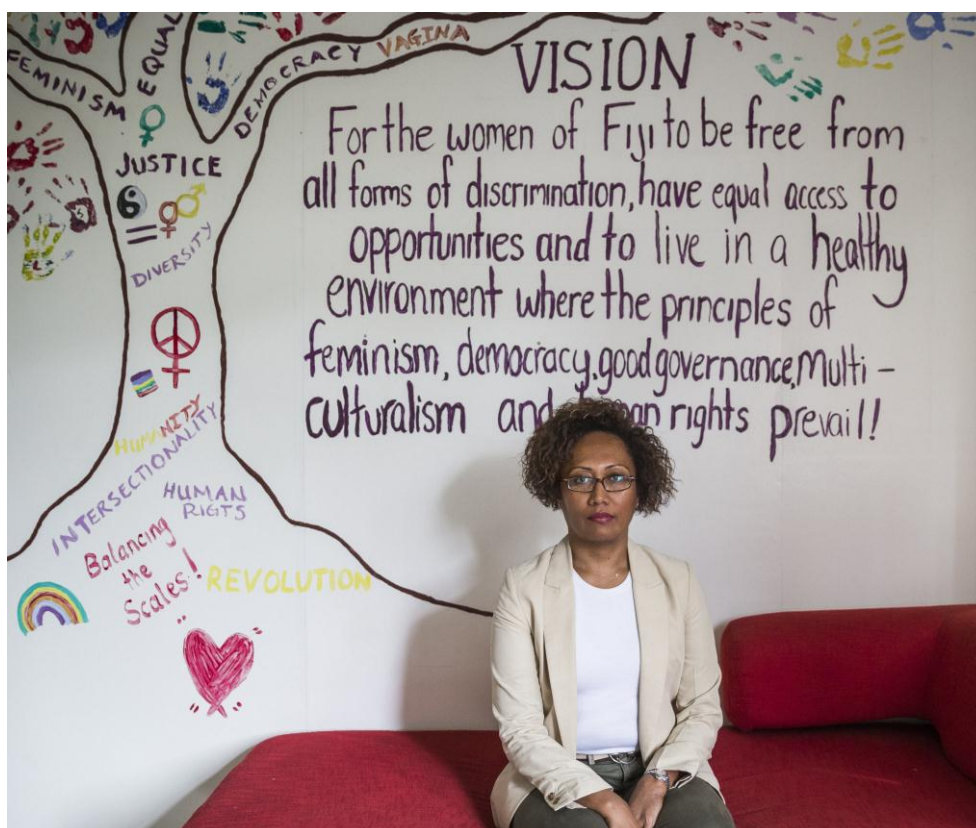 FEMINISM
EQUAL
DEMOCRACY VAGINA
JUSTICE
DIVERSITY
HUMANITY
INTERSECTIONALITY
HUMAN
RIGTS
Balancing
the
Scales!
REVOLUTION
VISION
For the women of Fiji to be free from
all forms of discrimination, have equal access to
opportunities and to live in a healthy
environment where the principles of
feminism, democracy, good governance, Multi-
culturalism and rights prevail!